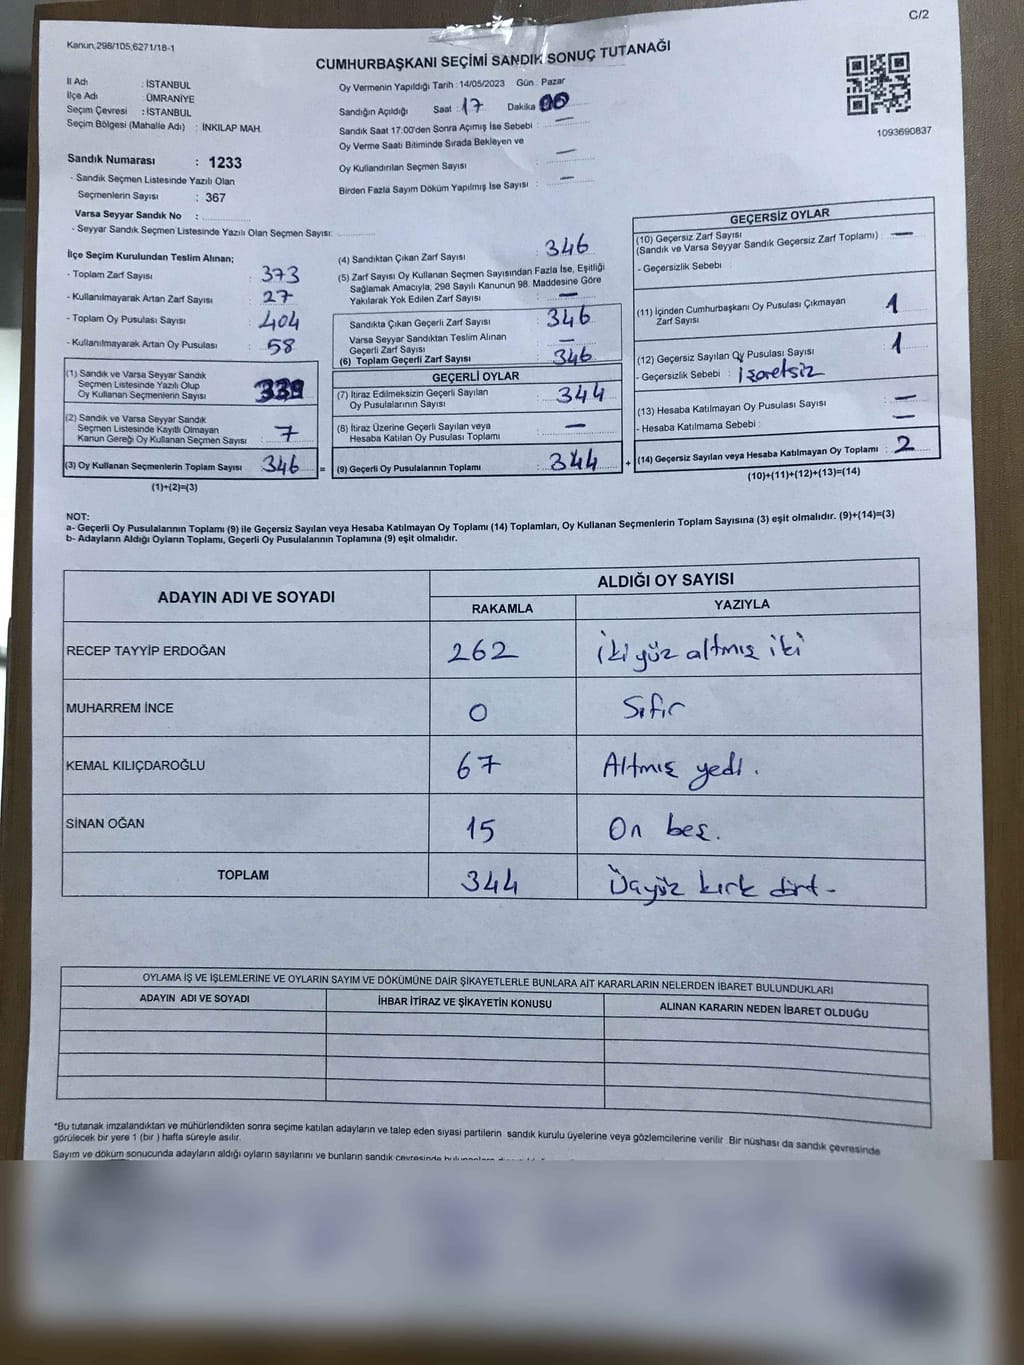 C/2
Kanun,298/105,6271/18-1
CUMHURBAŞKANI SEÇİMİ SANDIK SONUÇ TUTANAĞI
İl Adı : İSTANBUL
İlçe Adı : ÜMRANİYE
Seçim Çevresi : İSTANBUL
Seçim Bölgesi (Mahalle Adı) : İNKILAP MAH.
Sandık Numarası : 1233
- Sandık Seçmen Listesinde Yazılı Olan
Seçmenlerin Sayısı : 367
Varsa Seyyar Sandık No :
- Seyyar Sandık Seçmen Listesinde Yazılı Olan Seçmen Sayısı:
Oy Vermenin Yapıldığı Tarih : 14/05/2023 Gün : Pazar
Sandığın Açıldığı Saat : 17 Dakika 00
Sandık Saat 17:00'den Sonra Açımış İse Sebebi : —
Oy Verme Saati Bitiminde Sırada Bekleyen ve
Oy Kullandırılan Seçmen Sayısı : —
Birden Fazla Sayım Döküm Yapılmış İse Sayısı : —
1093690837
İlçe Seçim Kurulundan Teslim Alınan;
- Toplam Zarf Sayısı : 373
- Kullanılmayarak Artan Zarf Sayısı : 27
- Toplam Oy Pusulası Sayısı : 404
- Kullanılmayarak Artan Oy Pusulası : 58
(1) Sandık ve Varsa Seyyar Sandık
Seçmen Listesinde Yazılı Olup
Oy Kullanan Seçmenlerin Sayısı : 339
(2) Sandık ve Varsa Seyyar Sandık
Seçmen Listesinde Kayıtlı Olmayan
Kanun Gereği Oy Kullanan Seçmen Sayısı : 7
(3) Oy Kullanan Seçmenlerin Toplam Sayısı : 346 =
(1)+(2)=(3)
(4) Sandıktan Çıkan Zarf Sayısı : 346
(5) Zarf Sayısı Oy Kullanan Seçmen Sayısından Fazla İse, Eşitliği
Sağlamak Amacıyla; 298 Sayılı Kanunun 98. Maddesine Göre
Yakılarak Yok Edilen Zarf Sayısı : —
Sandıkta Çıkan Geçerli Zarf Sayısı : 346
Varsa Seyyar Sandıktan Teslim Alınan
Geçerli Zarf Sayısı : —
(6) Toplam Geçerli Zarf Sayısı : 346
GEÇERLİ OYLAR
(7) İtiraz Edilmeksizin Geçerli Sayılan
Oy Pusulalarının Sayısı : 344
(8) İtiraz Üzerine Geçerli Sayılan veya
Hesaba Katılan Oy Pusulası Toplamı : —
(9) Geçerli Oy Pusulalarının Toplamı : 344 +
GEÇERSİZ OYLAR
(10) Geçersiz Zarf Sayısı
(Sandık ve Varsa Seyyar Sandık Geçersiz Zarf Toplamı) : —
- Geçersizlik Sebebi :
(11) İçinden Cumhurbaşkanı Oy Pusulası Çıkmayan
Zarf Sayısı : 1
(12) Geçersiz Sayılan Oy Pusulası Sayısı : 1
- Geçersizlik Sebebi : işaretsiz
(13) Hesaba Katılmayan Oy Pusulası Sayısı : —
- Hesaba Katılmama Sebebi : —
(14) Geçersiz Sayılan veya Hesaba Katılmayan Oy Toplamı : 2
(10)+(11)+(12)+(13)=(14)
NOT:
a- Geçerli Oy Pusulalarının Toplamı (9) ile Geçersiz Sayılan veya Hesaba Katılmayan Oy Toplamı (14) Toplamları, Oy Kullanan Seçmenlerin Toplam Sayısına (3) eşit olmalıdır. (9)+(14)=(3)
b- Adayların Aldığı Oyların Toplamı, Geçerli Oy Pusulalarının Toplamına (9) eşit olmalıdır.
ADAYIN ADI VE SOYADI
ALDIĞI OY SAYISI
RAKAMLA YAZIYLA
RECEP TAYYİP ERDOĞAN 262 iki yüz altmış iki
MUHARREM İNCE 0 Sıfır
KEMAL KILIÇDAROĞLU 67 Altmış yedi.
SİNAN OĞAN 15 On beş.
TOPLAM 344 Üçyüz kırk dört-
OYLAMA İŞ VE İŞLEMLERİNE VE OYLARIN SAYIM VE DÖKÜMÜNE DAİR ŞİKAYETLERLE BUNLARA AİT KARARLARIN NELERDEN İBARET BULUNDUKLARI
ADAYIN ADI VE SOYADI İHBAR İTİRAZ VE ŞİKAYETİN KONUSU ALINAN KARARIN NEDEN İBARET OLDUĞU
*Bu tutanak imzalandıktan ve mühürlendikten sonra seçime katılan adayların ve talep eden siyasi partilerin sandık kurulu üyelerine veya gözlemcilerine verilir. Bir nüshası da sandık çevresinde
görülecek bir yere 1 (bir ) hafta süreyle asılır.
Sayım ve döküm sonucunda adayların aldığı oyların sayılarını ve bunların sandık çevresinde